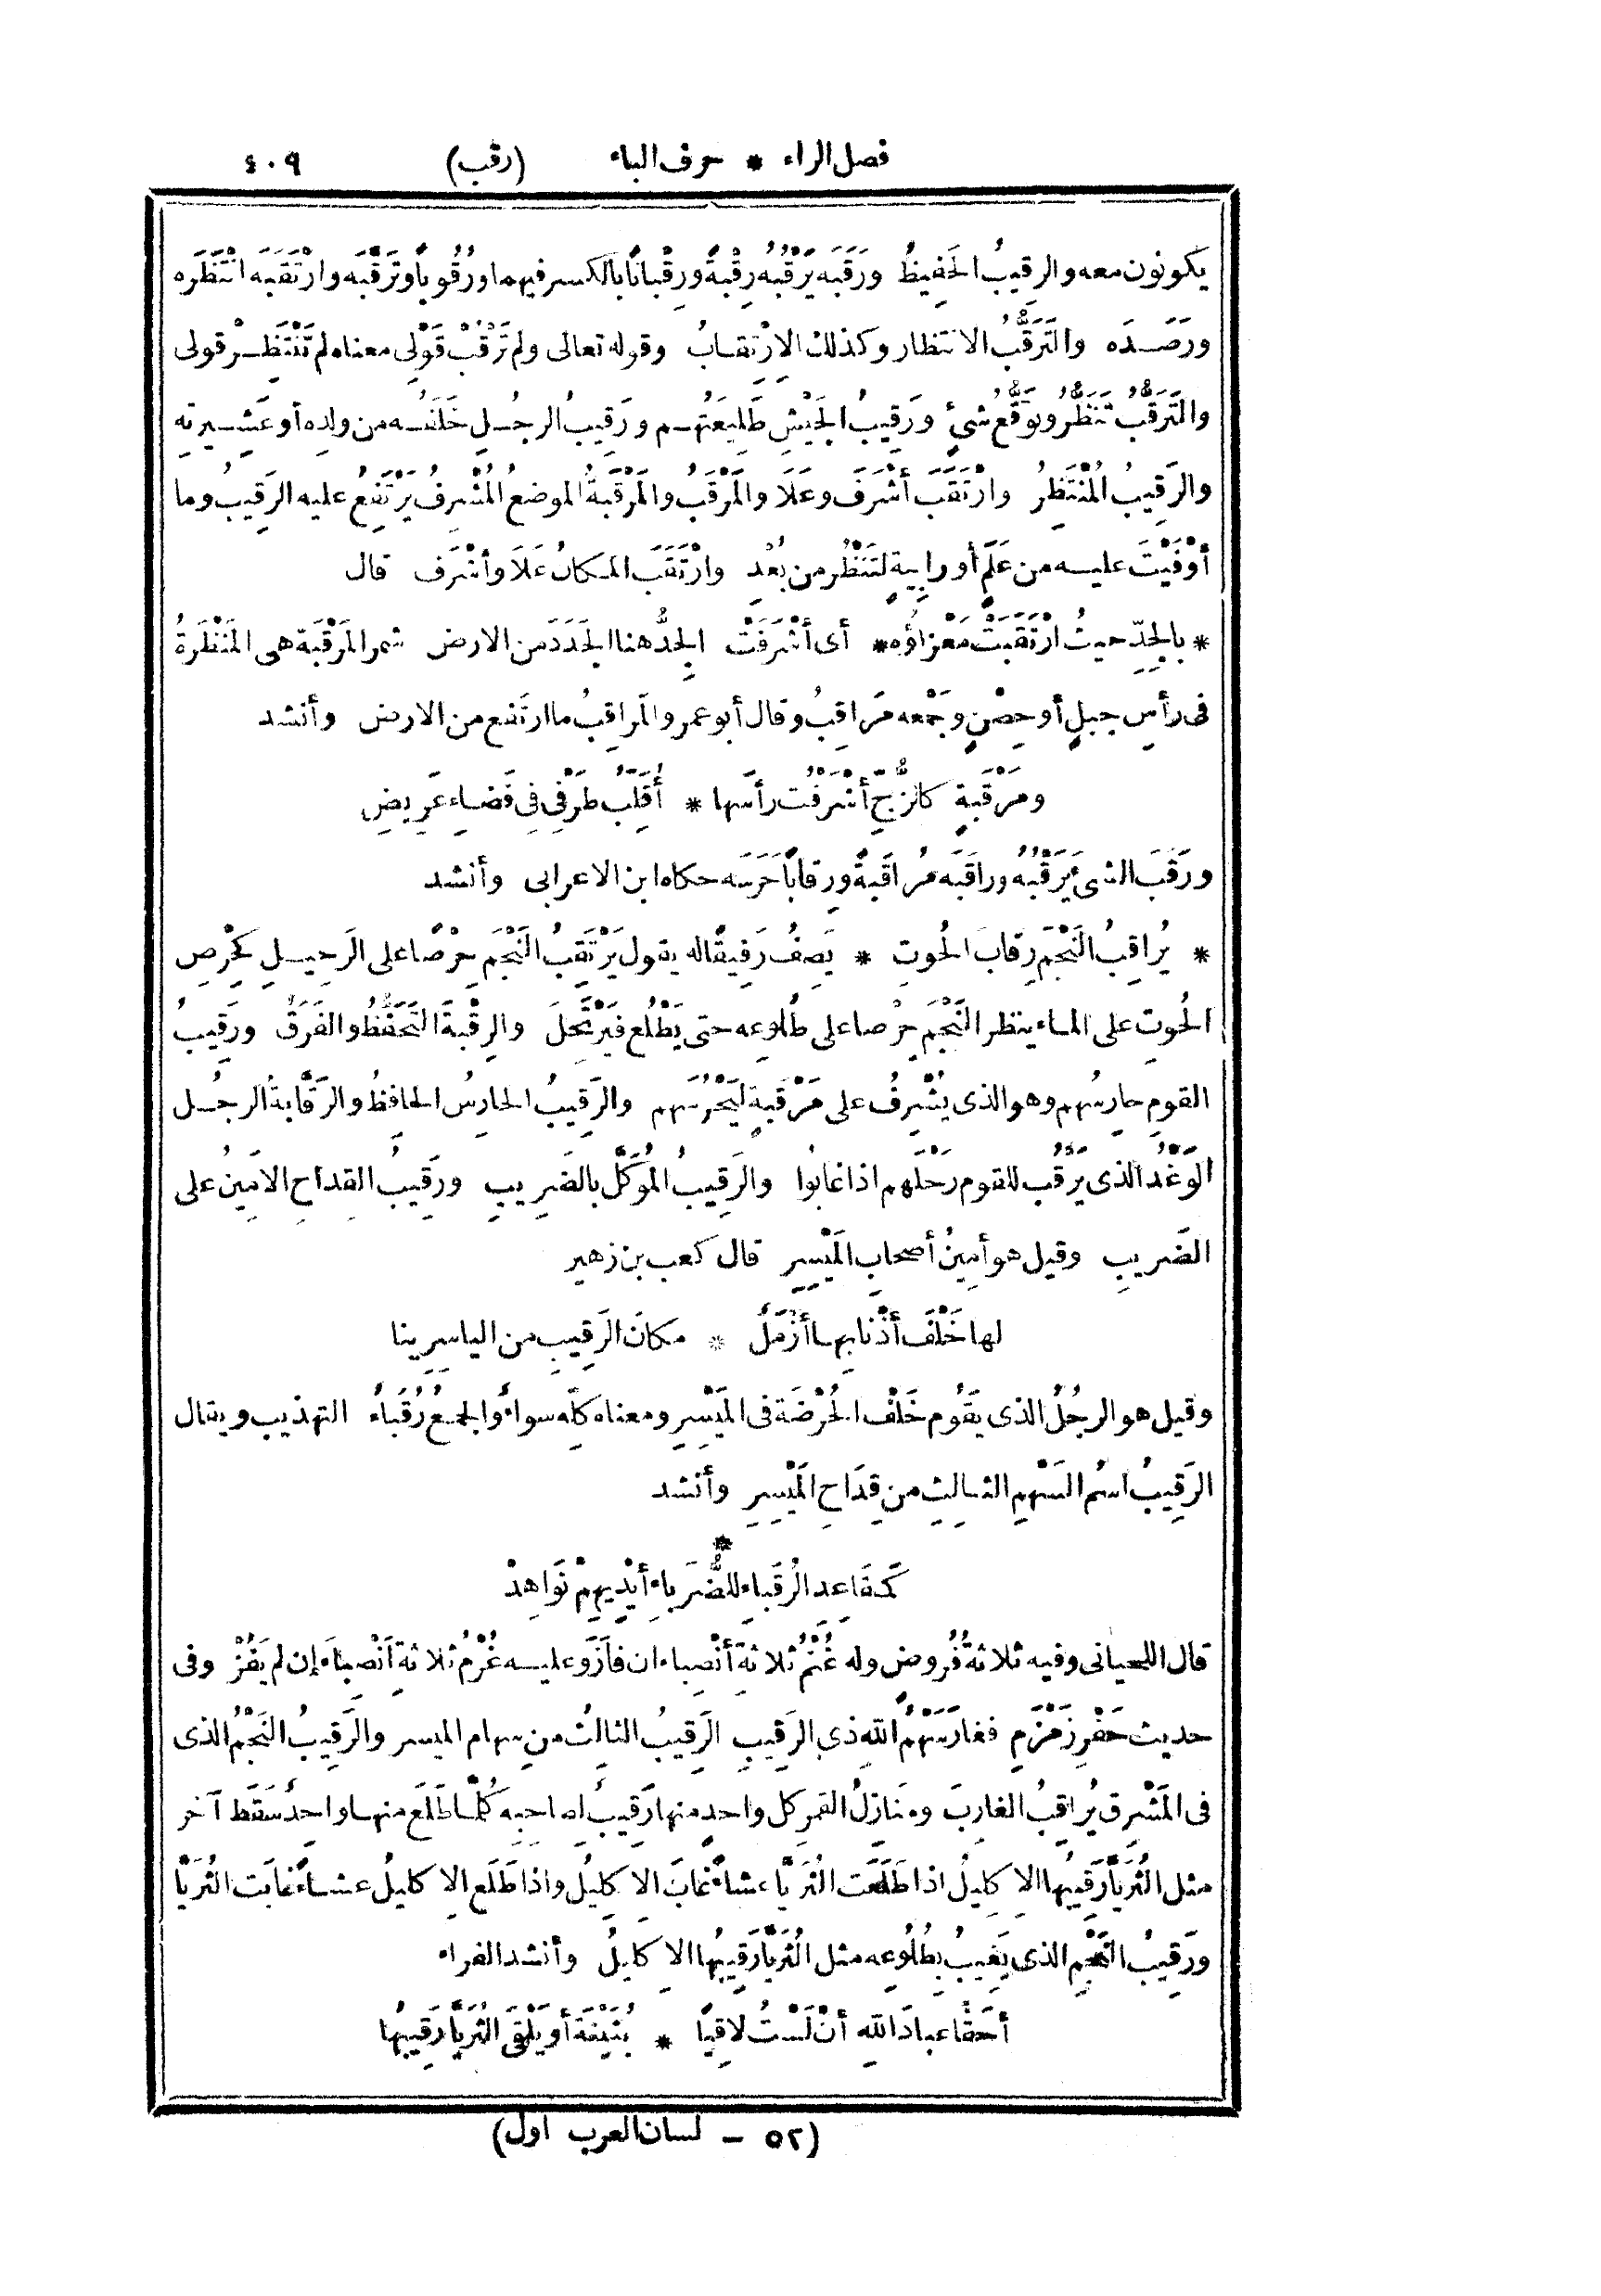 فصل الراء * حرف الباء (رقب) ٤٠٩
يكونون معه والرقيبُ الحَفِيظُ ورَقَبَه يَرْقُبُه رِقْبةً ورِقْباناً بالكسر فيهما ورُقُوباً وتَرَقَّبَه وارْتَقَبَه انْتَظَره
ورَصَدَه والتَرَقُّبُ الانتظار وكذلك الارْتِقابُ وقوله تعالى ولم تَرْقُبْ قَوْلِى معناه لم تَنْتَظِرْ قولى
والتَرَقُّبُ تَنَظُّرُ وتَوَقُّعُ شىءٍ ورَقِيبُ الجَيْشِ طَلِيعَتُهم ورَقِيبُ الرجُلِ خَلَفُه من ولدِه أو عَشِيرتِه
والرَقِيبُ المُنْتَظِرُ وارْتَقَبَ أشْرَفَ وعَلَا والمَرْقَبُ والمَرْقَبةُ الموضعُ المُشْرِفُ يَرْتَفِعُ عليه الرَقِيبُ وما
أوْفَيْتَ عليه من عَلَمٍ أو رابِيةٍ لتَنْظُر من بُعْدٍ وارْتَقَبَ المكانُ عَلَا وأشْرَف قال
* بالجِدِّ حيثُ ارْتَقَبَتْ مَعْزاؤُه * أى أشْرَفَتْ الجِدُّ هنا الجَدَدُ من الارض شمر المَرْقَبة هى المَنْظَرةُ
فى رأسِ جبلٍ أو حِصْنٍ وجَمْعه مَراقِبُ وقال أبو عمرو المَراقِبُ ما ارتَفع من الارض وأنشد
ومَرْقَبةٍ كالزُّجِّ أشْرَفْتُ رأسَها * أُقَلِّبُ طَرْفِى فى فَضاءٍ عَرِيضِ
ورَقَبَ الشىءَ يَرْقُبُه وراقَبَه مُراقَبةً ورِقاباً حَرَسَه حكاه ابن الاعرابى وأنشد
* يُراقِبُ النَجْمَ رِقابَ الحُوتِ * يَصِفُ رَفِيقاً له يقول يَرْتَقِبُ النَجْمَ حِرْصاً على الرَحِيلِ كحِرْصِ
الحُوتِ على الماء ينظر النَجْمَ حِرْصا على طُلوعِه حتى يَطْلُع فيَرْتَحِلَ والرِقْبةُ التَحَفُّظُ والفَرَقُ ورَقِيبُ
القومِ حارِسُهم وهو الذى يُشْرِفُ على مَرْقَبةٍ ليَحْرُسَهم والرَقِيبُ الحارِسُ الحافِظُ والرَقَّابةُ الرجُل
الوَغْدُ الذى يَرْقُب للقوم رَحْلَهم اذا غابُوا والرَقِيبُ المُوَكَّل بالضَرِيبِ ورَقِيبُ القِداحِ الامِينُ على
الضَرِيبِ وقيل هو أمِينُ أصحابِ المَيْسِرِ قال كعب بن زهير
لها خَلْفَ أذْنابِها أزْمَلٌ * مكانَ الرَقِيبِ من الياسِرِينا
وقيل هو الرجُلُ الذى يَقُوم خَلْفَ الحُرْضَة فى المَيْسِرِ ومعناه كلِّه سواءٌ والجمعُ رُقَباءُ التهذيب ويقال
الرَقِيبُ اسْمُ السَهْمِ الثالِثِ من قِدَاحِ المَيْسِرِ وأنشد
*
كَمقَاعِد الرُقَباءِ للضُّرَباءِ أيْدِيهِمْ نَواهِدْ
قال اللحيانى وفيه ثلاثةُ فُروض وله غُنْمُ ثلاثةِ أنْصِباء ان فازَ وعليه غُرْمُ ثلاثةِ أنْصِباءَ إن لم يَفُزْ وفى
حديث حَفْرِ زَمْزَم فغارَ سَهْمُ اللّٰهِ ذِى الرَقِيبِ الرَقِيبُ الثالِثُ من سِهام الميسر والرَقِيبُ النَجْمُ الذى
فى المَشْرِق يُراقِبُ الغارِبَ ومنازِلُ القمر كل واحد منها رَقِيبٌ لصاحِبِه كُلَّما طَلَع منها واحِدٌ سَقَطَ آخر
مثل الثُرَيَّا رَقِيبُها الإكلِيلُ اذا طَلَعَت الثُرَيَّا عِشاءً غابَ الإكلِيلُ واذا طَلَع الإكلِيلُ عشاءً غابَت الثُرَيَّا
ورَقِيبُ النَجْمِ الذى يَغِيبُ بطُلُوعِه مثل الثُرَيَّا رَقِيبُها الإكلِيلُ وأنشد الفراء
أحَقًّا عبادَ اللّٰهِ أنْ لَسْتُ لاقِيًا * بُثَيْنةَ أو يَلْقَى الثُرَيَّا رَقِيبُها
(٥٢ - لسان العرب اول)